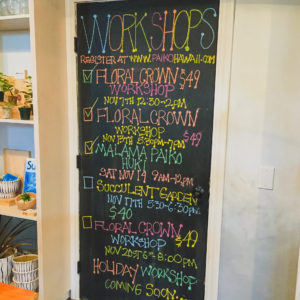 WORKSHOPS
REGISTER AT WWW.PAIKOHAWAII.COM
FLORAL CROWN $49
WORKSHOP
NOV 7TH 12:30-2PM
FLORAL CROWN
WORKSHOP $49
NOV 13TH 5:30PM-7PM
MALAMA PAIKO
HUKI
SAT NOV 14 9AM-12PM
SUCCULENT GARDEN
NOV 17TH 5:30-6:30PM
$40
FLORAL CROWN
WORKSHOP $49
NOV 20ST 6:30-8:00PM
HOLIDAY WORKSHOP
COMING SOON...